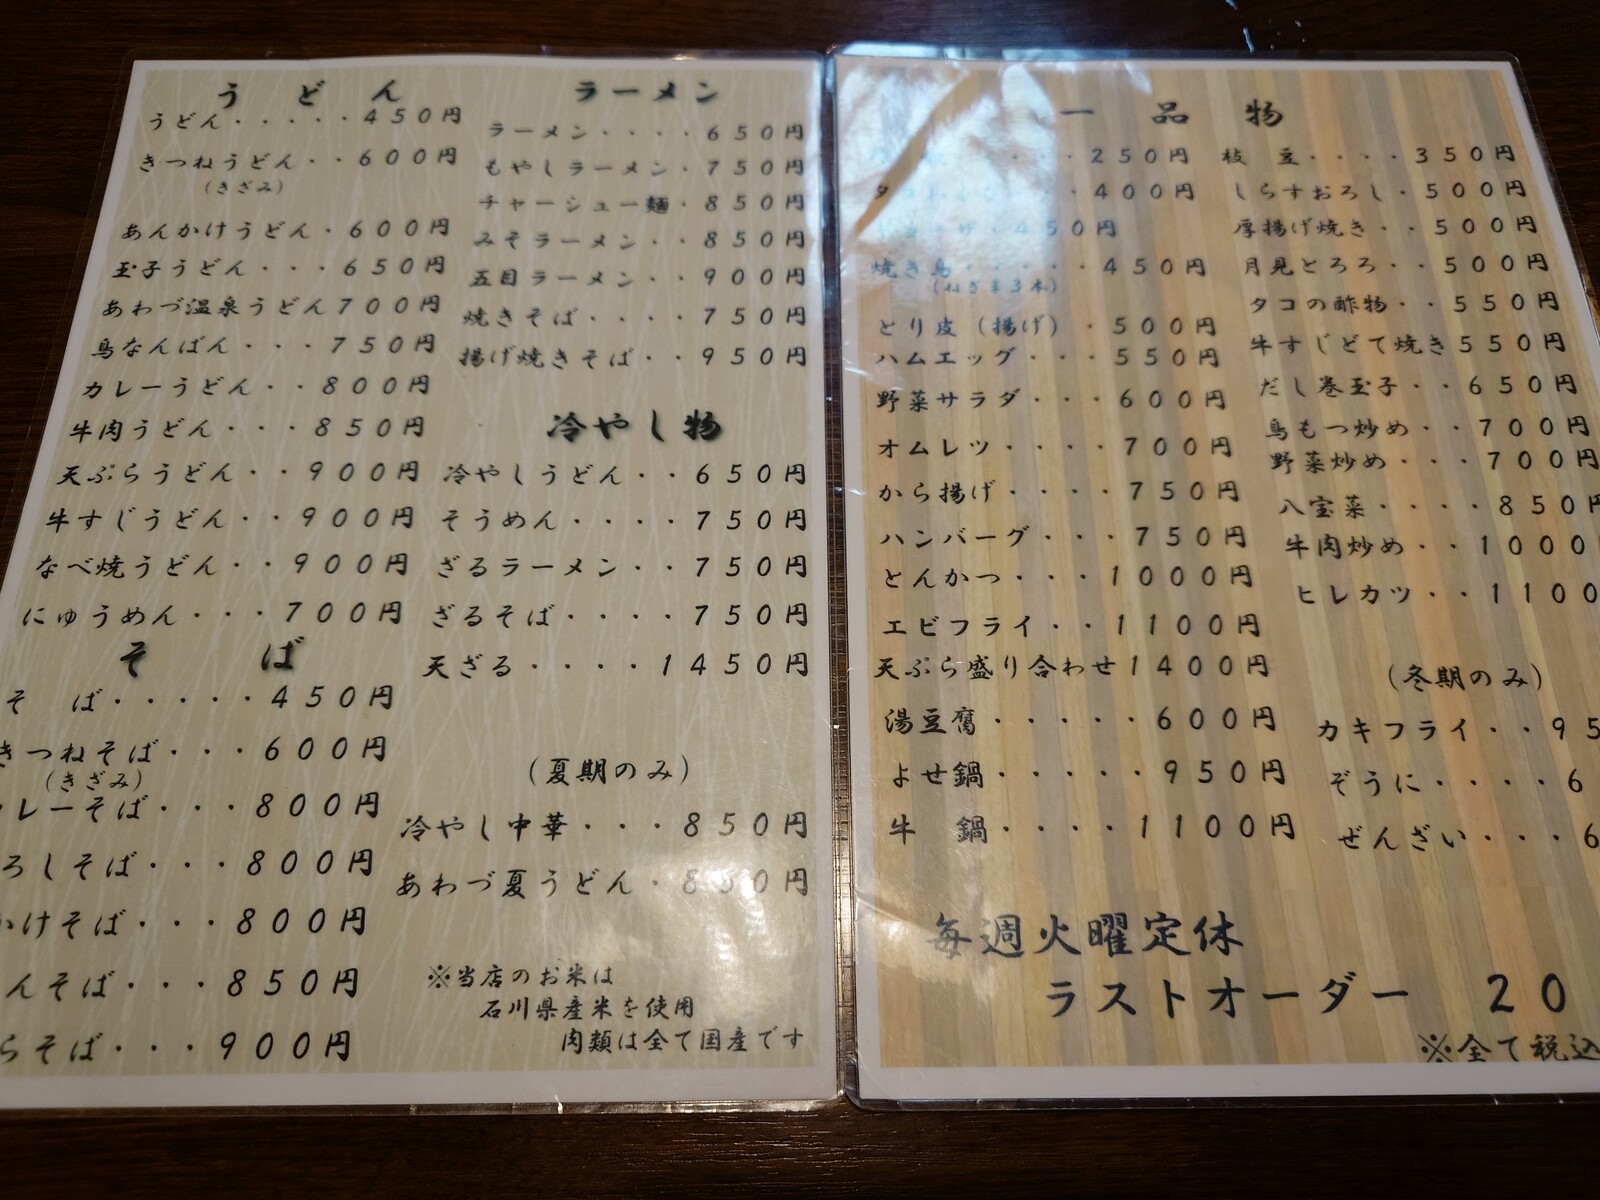 うどん
うどん・・・・・450円
きつねうどん・・600円
(きざみ)
あんかけうどん・600円
玉子うどん・・・650円
あわづ温泉うどん700円
鳥なんばん・・・750円
カレーうどん・・800円
牛肉うどん・・・850円
天ぷらうどん・・900円
牛すじうどん・・900円
なべ焼うどん・・900円
にゅうめん・・・700円
そば
そ ば・・・・・450円
きつねそば・・・600円
(きざみ)
レーそば・・・800円
ろしそば・・・800円
かけそば・・・800円
んそば・・・850円
らそば・・・900円
ラーメン
ラーメン・・・・650円
もやしラーメン・750円
チャーシュー麺・850円
みそラーメン・・850円
五目ラーメン・・900円
焼きそば・・・・750円
揚げ焼きそば・・950円
冷やし物
冷やしうどん・・650円
そうめん・・・・750円
ざるラーメン・・750円
ざるそば・・・・750円
天ざる・・・・1450円
(夏期のみ)
冷やし中華・・・850円
あわづ夏うどん・850円
※当店のお米は
石川県産米を使用
肉類は全て国産です
一品物
・・・250円
・・400円
・450円
焼き鳥・・・・・450円
(ねぎま3本)
とり皮(揚げ)・500円
ハムエッグ・・・550円
野菜サラダ・・・600円
オムレツ・・・・700円
から揚げ・・・・750円
ハンバーグ・・・750円
とんかつ・・・1000円
エビフライ・・1100円
天ぷら盛り合わせ1400円
湯豆腐・・・・・600円
よせ鍋・・・・・950円
牛 鍋・・・・1100円
枝 豆・・・・350円
しらすおろし・500円
厚揚げ焼き・・500円
月見とろろ・・500円
タコの酢物・・550円
牛すじどて焼き550円
だし巻玉子・・650円
鳥もつ炒め・・700円
野菜炒め・・・700円
八宝菜・・・・850円
牛肉炒め・・1000
ヒレカツ・・1100
(冬期のみ)
カキフライ・・95
ぞうに・・・・6
ぜんざい・・・6
毎週火曜定休
ラストオーダー 20
※全て税込